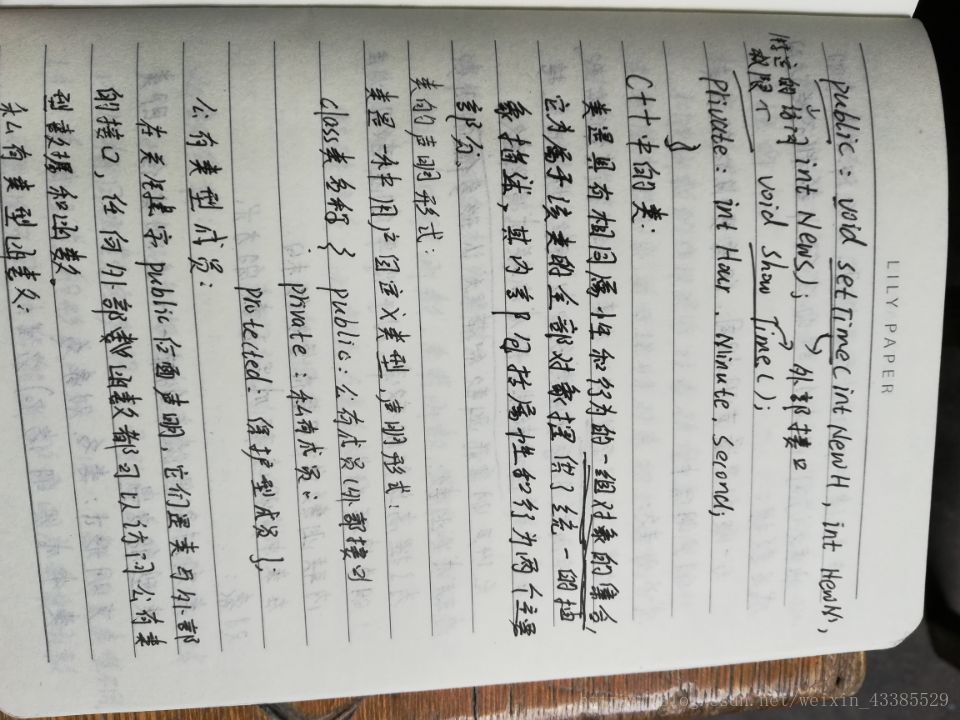 LILY PAPER
public: void setTime(int NewH, int NewM,
int NewS); 外部接口
特定的访问
权限个 void show Time();
private: int Hour, Minute, Second;
}
C++中的类:
类是具有相同属性和行为的一组对象的集合,
它为属于该类的全部对象提供了统一的抽
象描述,其内部包括属性和行为两个主要
部分。
类的声明形式:
类是一种用户自定义类型,声明形式:
class类名称 { public: 公有成员(外部接口)
private: 私有成员;
protected: 保护型成员};
公有类型成员:
在关键字public后面声明,它们是类与外部
的接口,任何外部函数都可以访问公有类
型数据和函数。
私有类型函数:
weixin_43385529